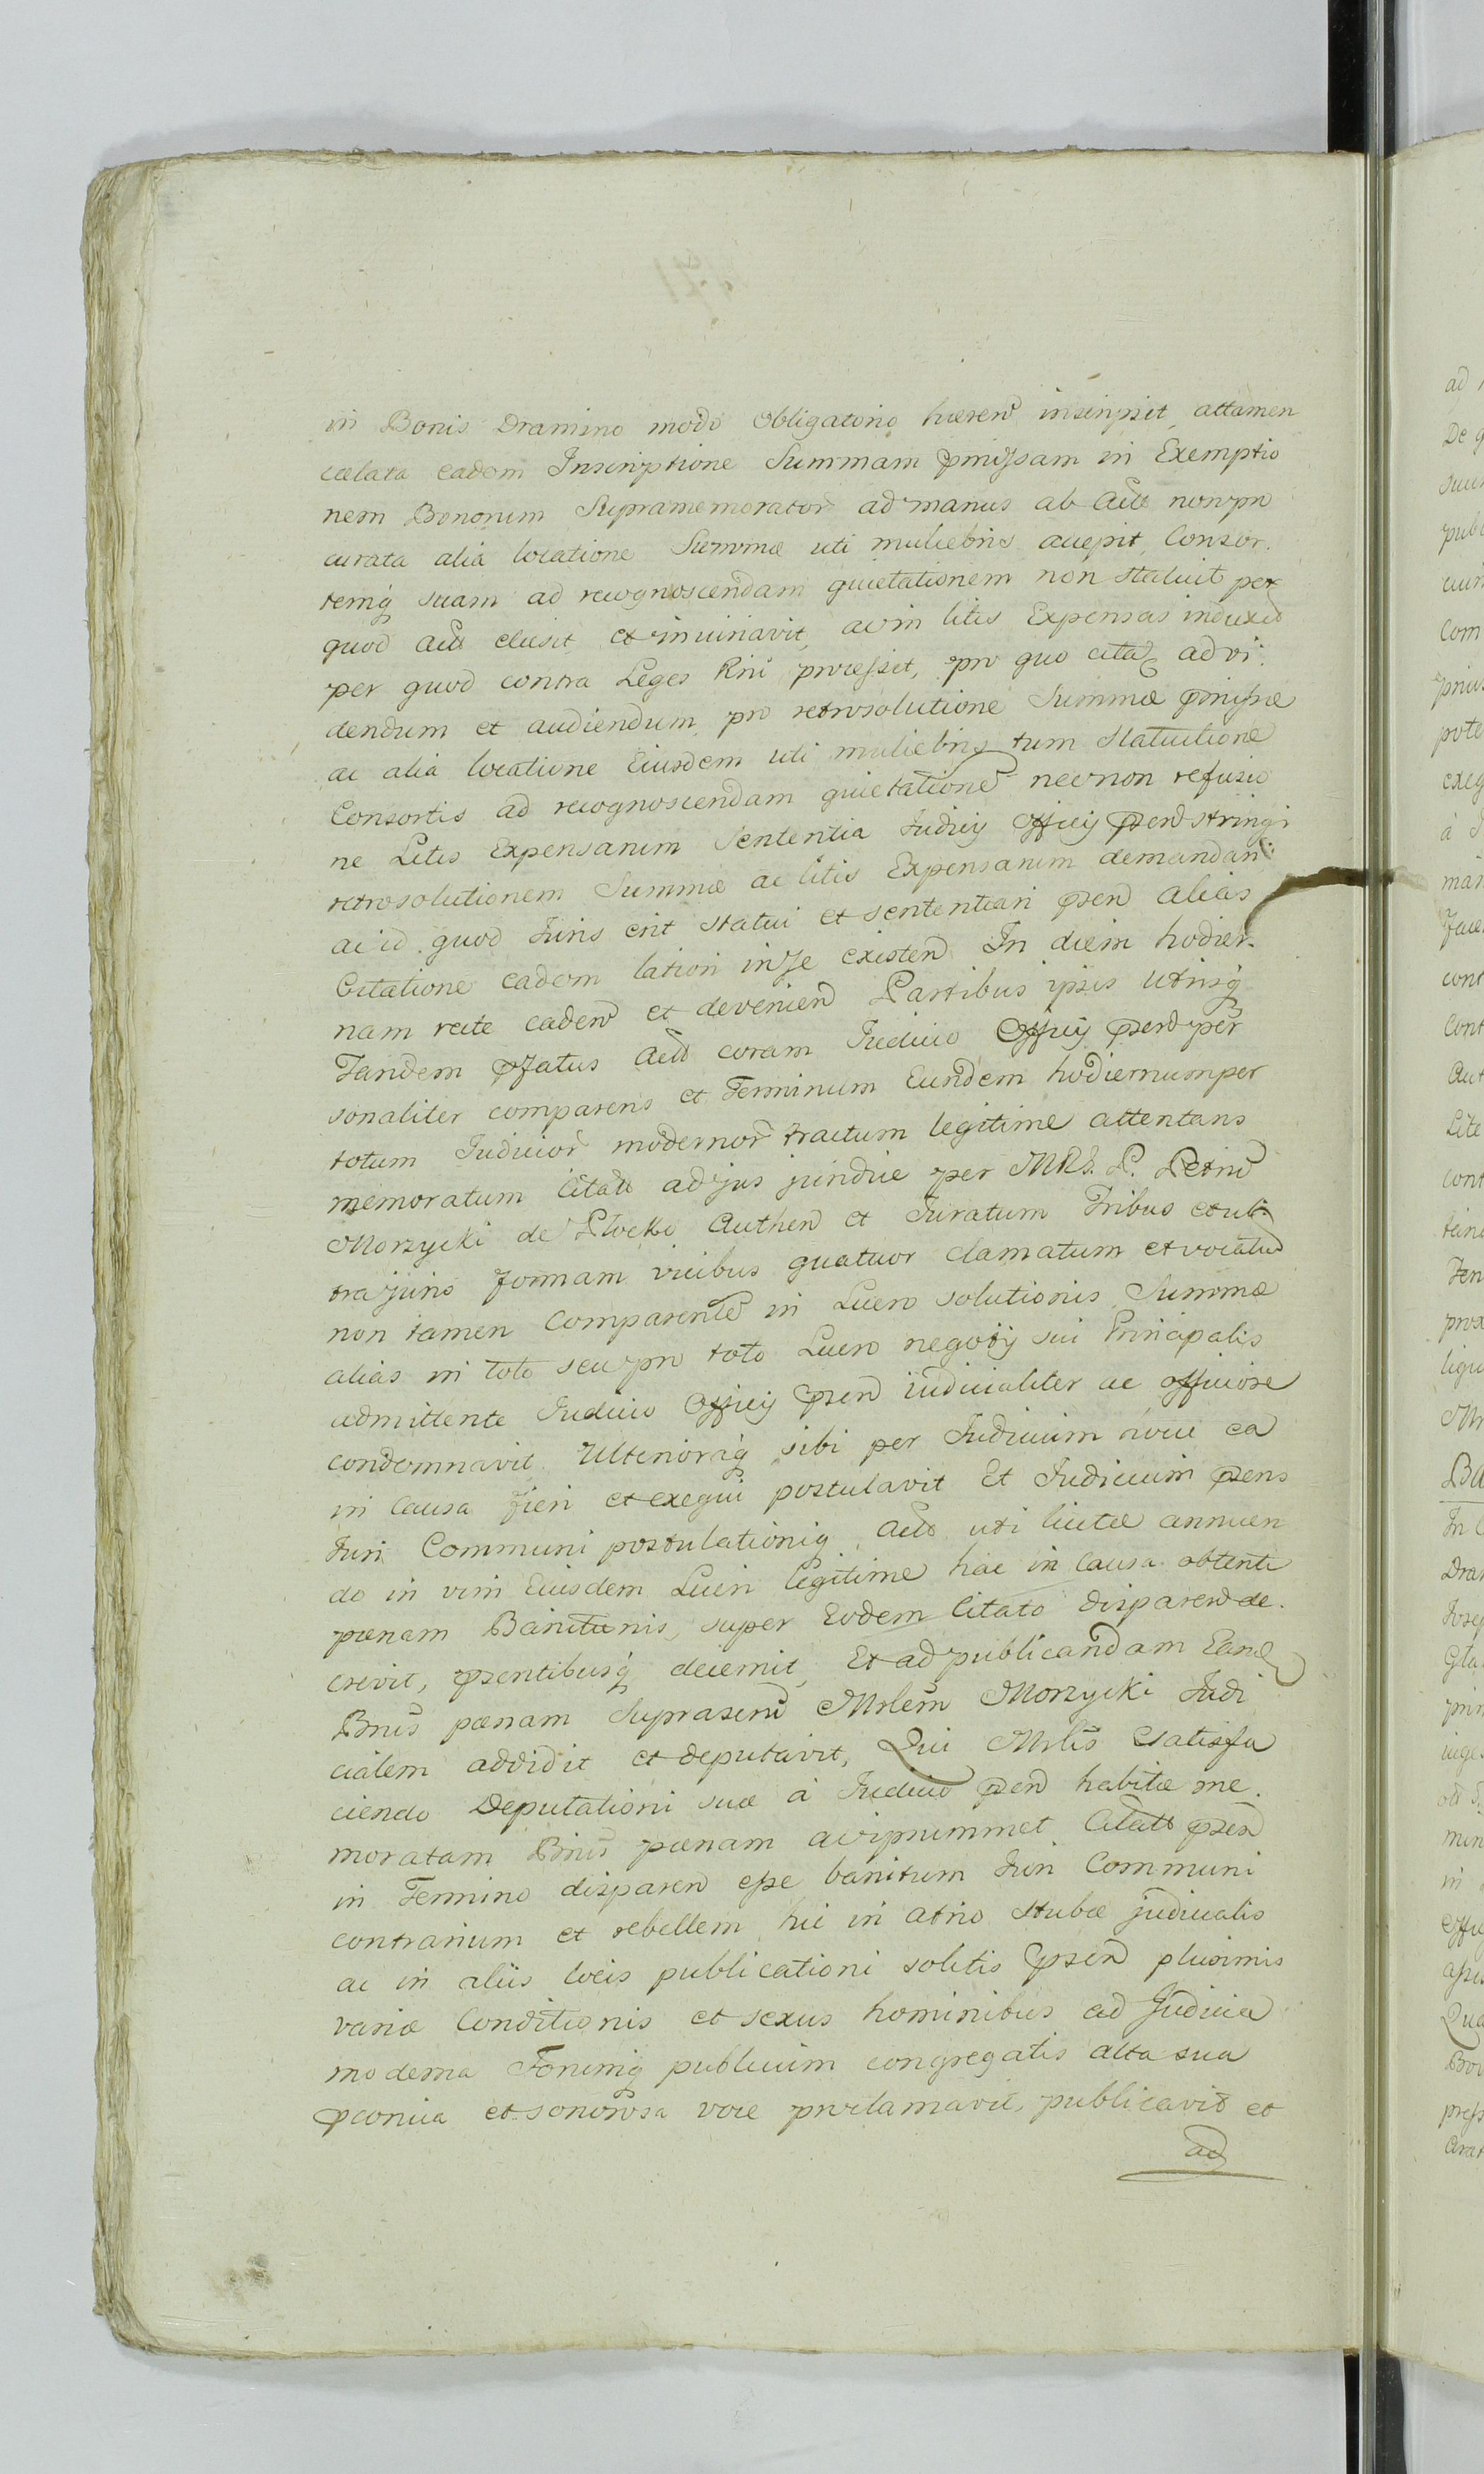 in Bonis Dramino modo obligatorio hæren inscripsit, attamen
cælata eadem Inscriptione Summam pmissam in Exemptio
nem Bonorum Supramemorator ad manus ab Actt non pro
curata alia locatione Summæ uti muliebris accepit, Consor.
temq suam ad recognoscendam quietationem non statuit per
quod Actt elusit et iniuriavit, ac in litis Expensas induxit
per quod contra Leges Rni processit, pro quo cita ad vi.
dendum et audiendum pro retrosolutione Summæ pmissæ
ac alia locatione Eiusdem uti muliebris tum statuitione
Consortis ad recognoscendam quietatione necnon refusio
ne Litis Expensarum Sententia Iudicij Officij psen stringi
retrosolutionem Summæ ac litis Expensarum demandari
ac id quod Iuris erit statui et sententiari psen alias
Citatione eadem latiori in se existen In diem hodier.
nam recte caden et devenien Partibus ipsis utrisq
Tandem pfatus Actt coram Iudicio Officij psen per
sonaliter comparens et Terminum Eundem hodiernum per
totum Iudicior modernor tractum legitime attentans
memoratum Citatt ad jus juridice per MRS. P. Petru
Morzycki de Plocko Authen et Iuratum Tribus et ul
tra juris formam vicibus quatuor clamatum et vocatu
non tamen Comparente in Lucro solutionis Summæ
alias in toto seu pro toto Lucro negotij sui Principalis
admittente Iudicio Officij psen iudicialiter ac officiose
condemnavit Ulterioraq sibi per Iudicium in ea
in Causa fieri et exequi postulavit Et Iudicium psens
Iuri Communi postulationiq Actt uti licitæ annuen
do in vim Eiusdem Lucri legitime hac in Causa obtenti
pœnam Banitionis, super Eodem Citato disparen de.
crevit, psentibusq decernit, Et ad publicandam Eand
Bnis pœnam Suprascru Mrlem Morzycki Iudi
cialem addidit et deputavit, Qui Mrlis satisfa
ciendo Deputationi suæ à Iudicio psen habitæ me.
moratam Bnis pœnam ac ipsummet Citatt psen
in Termino disparen esse banitum Iuri Communi
contrarium et rebellem, hic in atrio stubæ judicialis
ac in aliis locis publicationi solitis psen plurimis
variæ Conditionis et sexus hominibus ad Judicia
moderna Forumq publicum congregatis alta sua
pconica et sonorosa voce proclamavit, publicavit et
ad